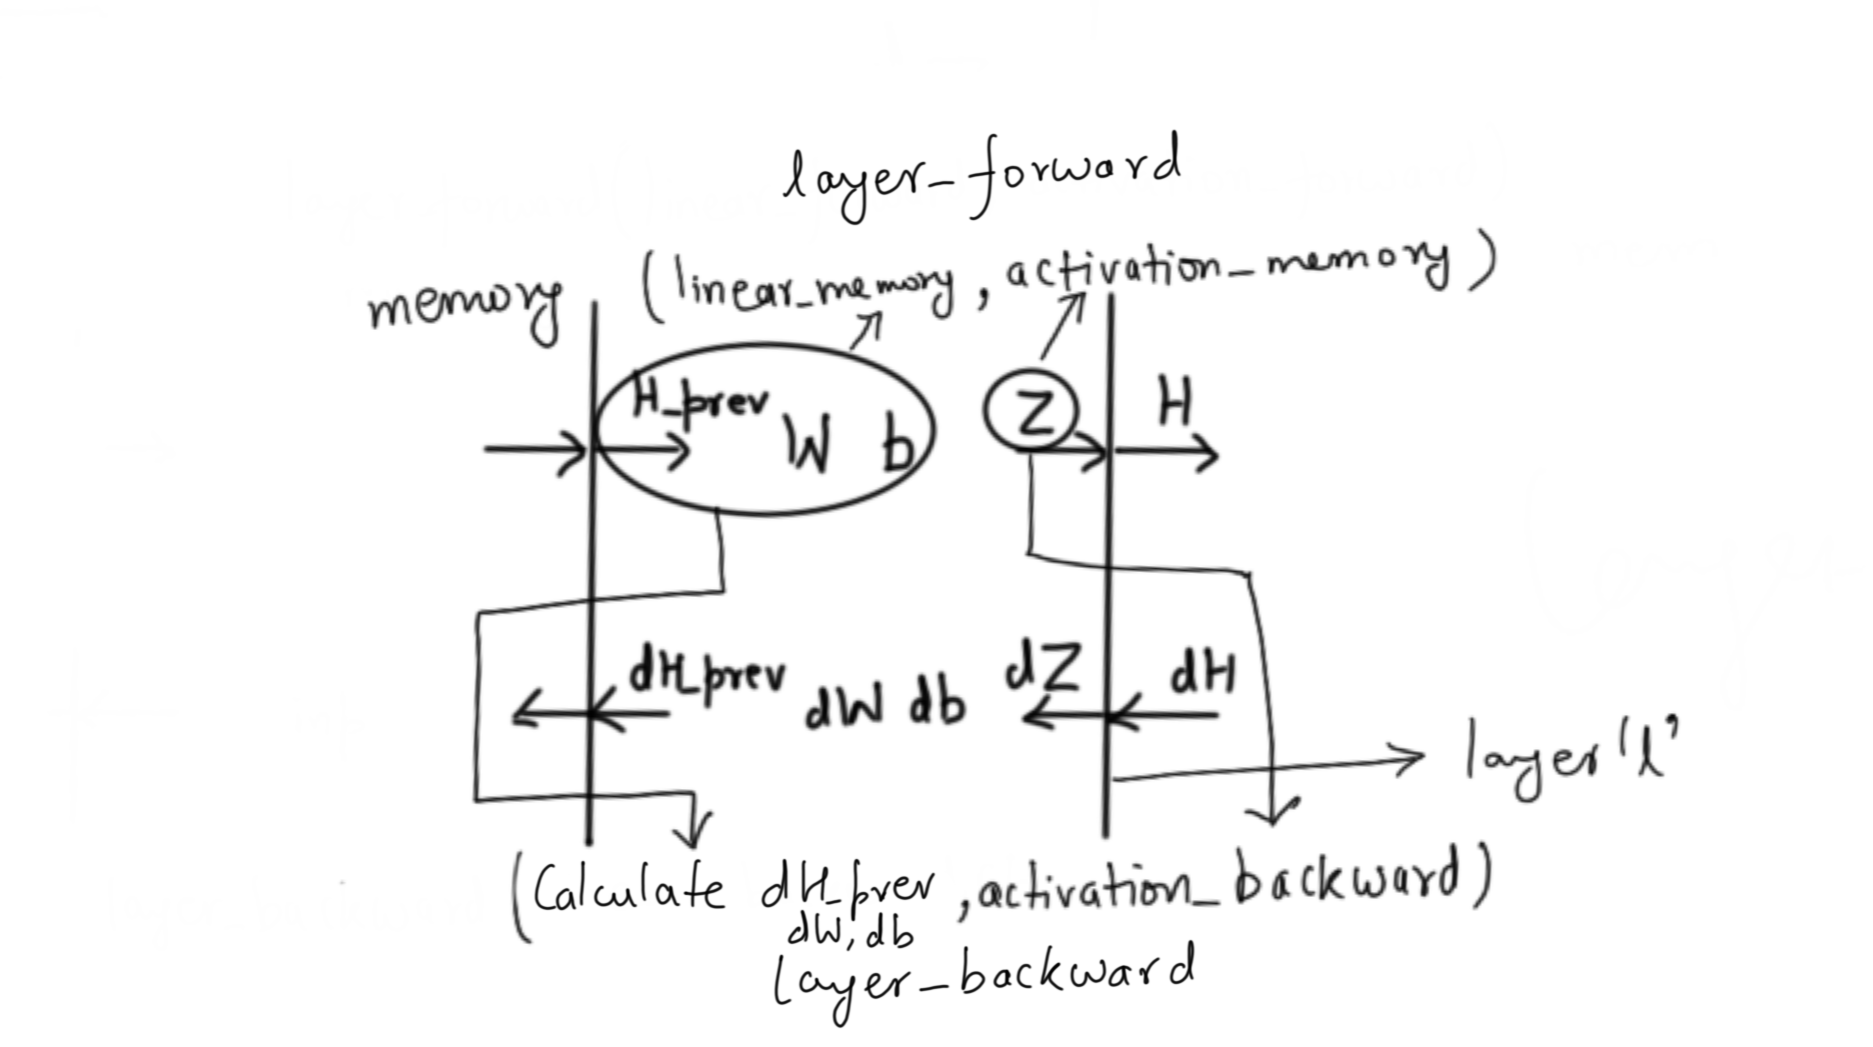 layer_forward
memory (linear_memory, activation_memory)
H_prev W b Z H
dH_prev dW db dZ dH
layer 'l'
(Calculate dH_prev, activation_backward)
dW, db
layer_backward